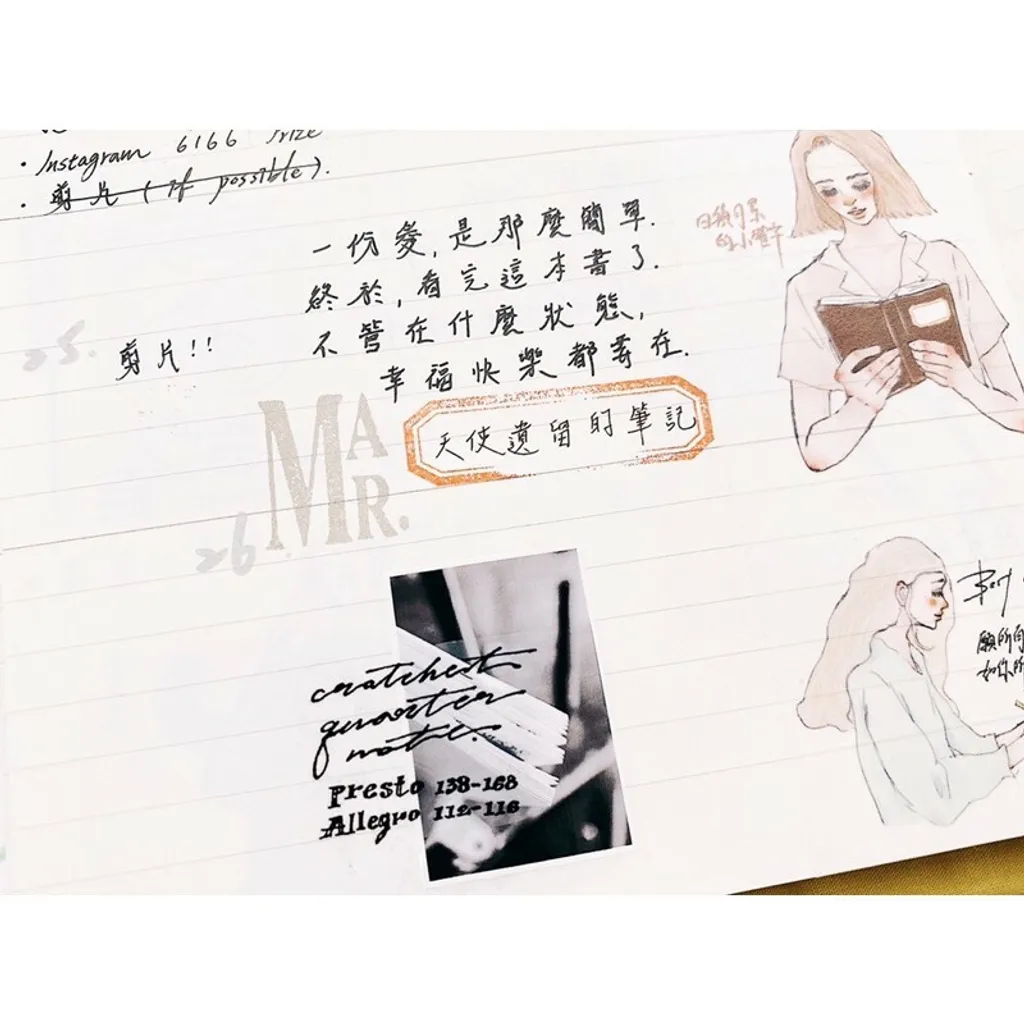 • Instagram 6166 Prize
• 剪片 (if possible).
一份愛,是那麼簡單.
終於,看完這本書了.
不管在什麼狀態,
幸福快樂都善在.
25.
剪片!!
天使遺留的筆記
MAR.
26
的小
願所
如你所
cratchest
quarter
note.
Presto 138-168
Allegro 112-116